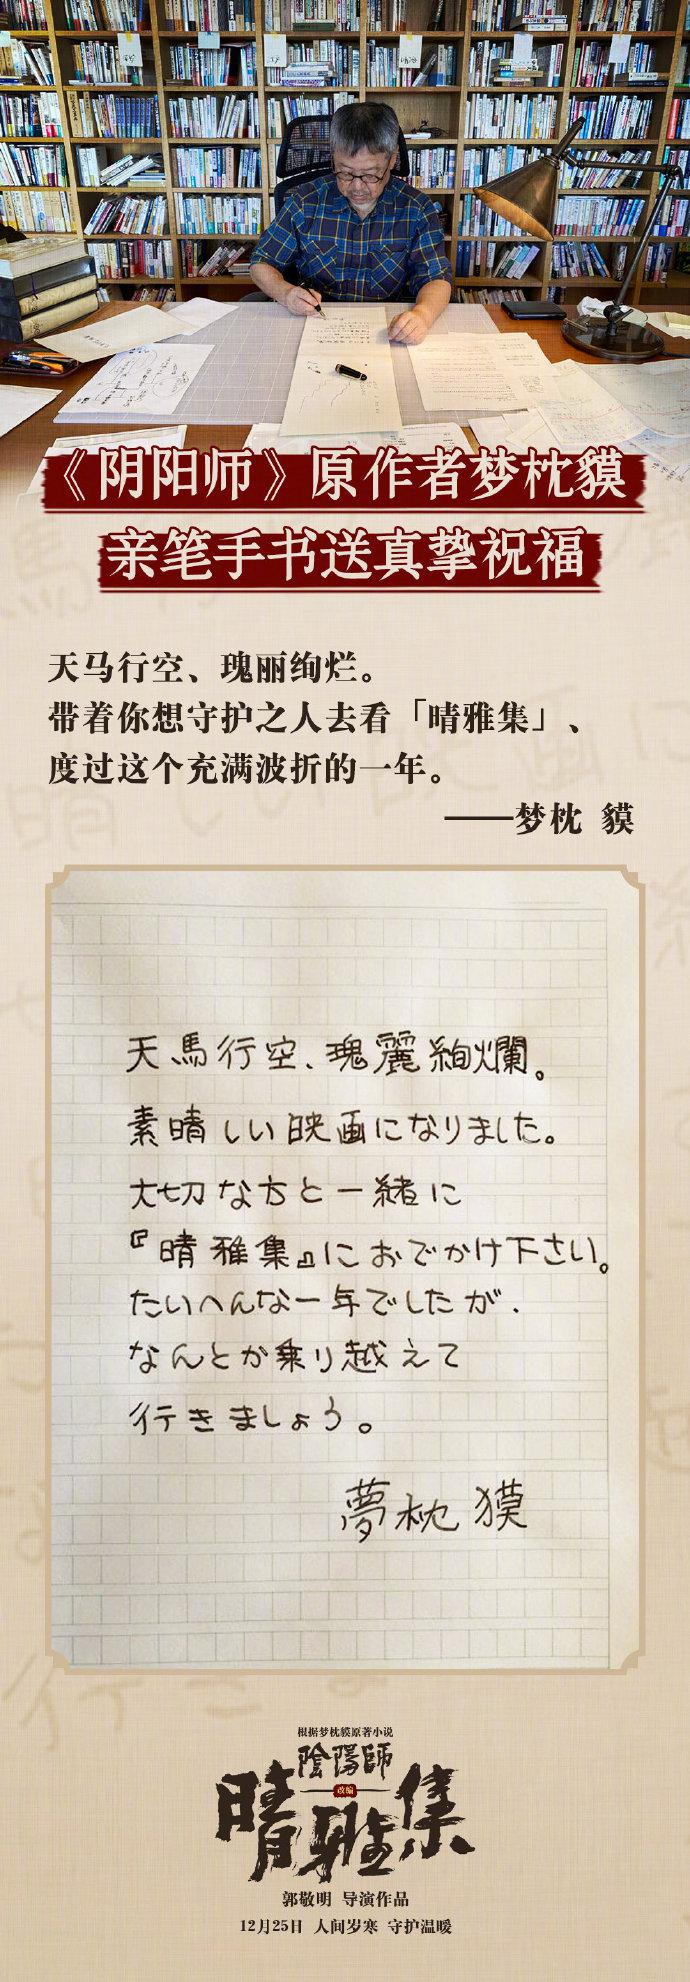 《阴阳师》原作者梦枕貘
亲笔手书送真挚祝福
天马行空、瑰丽绚烂。
带着你想守护之人去看「晴雅集」、
度过这个充满波折的一年。
——梦枕 貘
天馬行空、瑰麗絢爛。
素晴しい映画になりました。
大切な方と一緒に
『晴雅集』におでかけ下さい。
たいへんな一年でしたが、
なんとか乗り越えて
行きましょう。
夢枕獏
根据梦枕貘原著小说
陰陽師
改编
晴雅集
郭敬明 导演作品
12月25日 人间岁寒 守护温暖